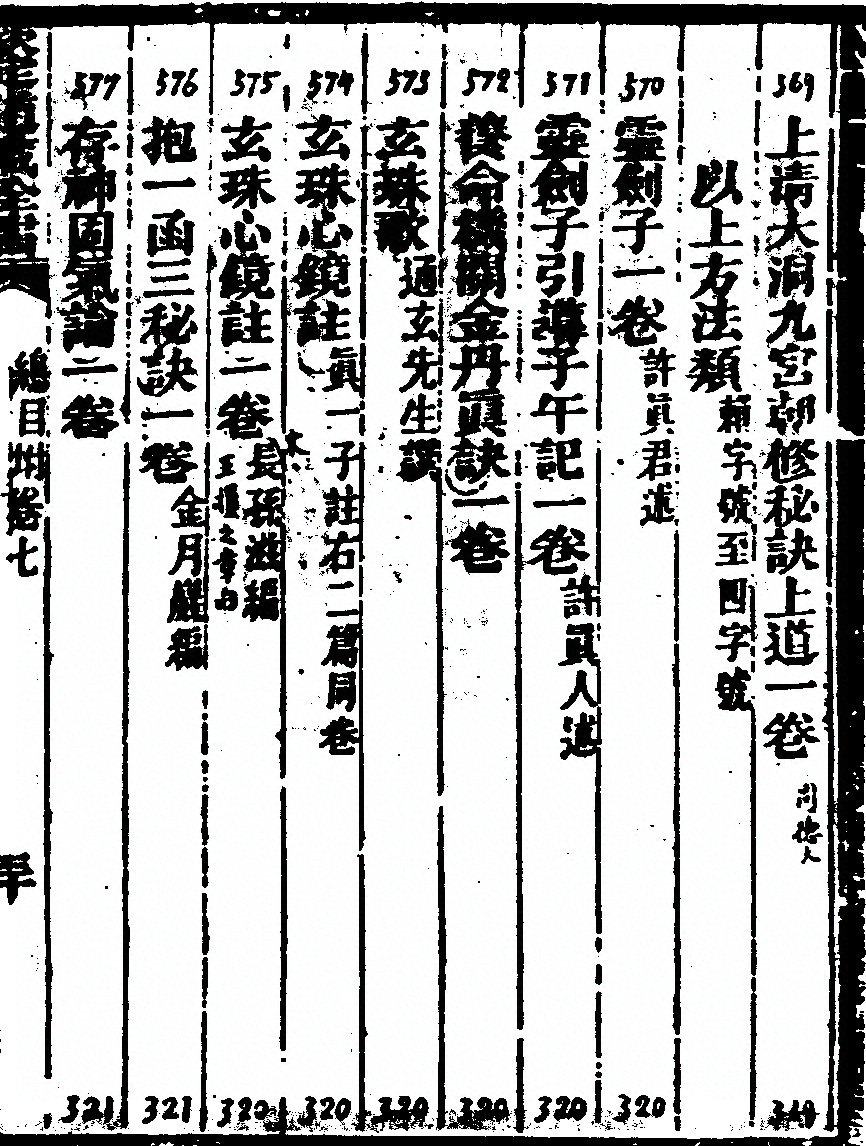 369
上清大洞九宮朝修秘訣上道一卷
319
以上方法類
賴字號至四字號
570
靈劍子一卷
許眞君述
320
571
靈劍子引導子午記一卷
許眞人述
320
572
養命機關金丹眞訣一卷
320
573
玄珠歌
通玄先生譔
320
574
玄珠心鏡註
眞一子註右二篇同卷
320
575
玄珠心鏡註二卷
長孫滋編
320
576
抱一函三秘訣一卷
金月巖編
321
577
存神固氣論一卷
321
總目
卷七